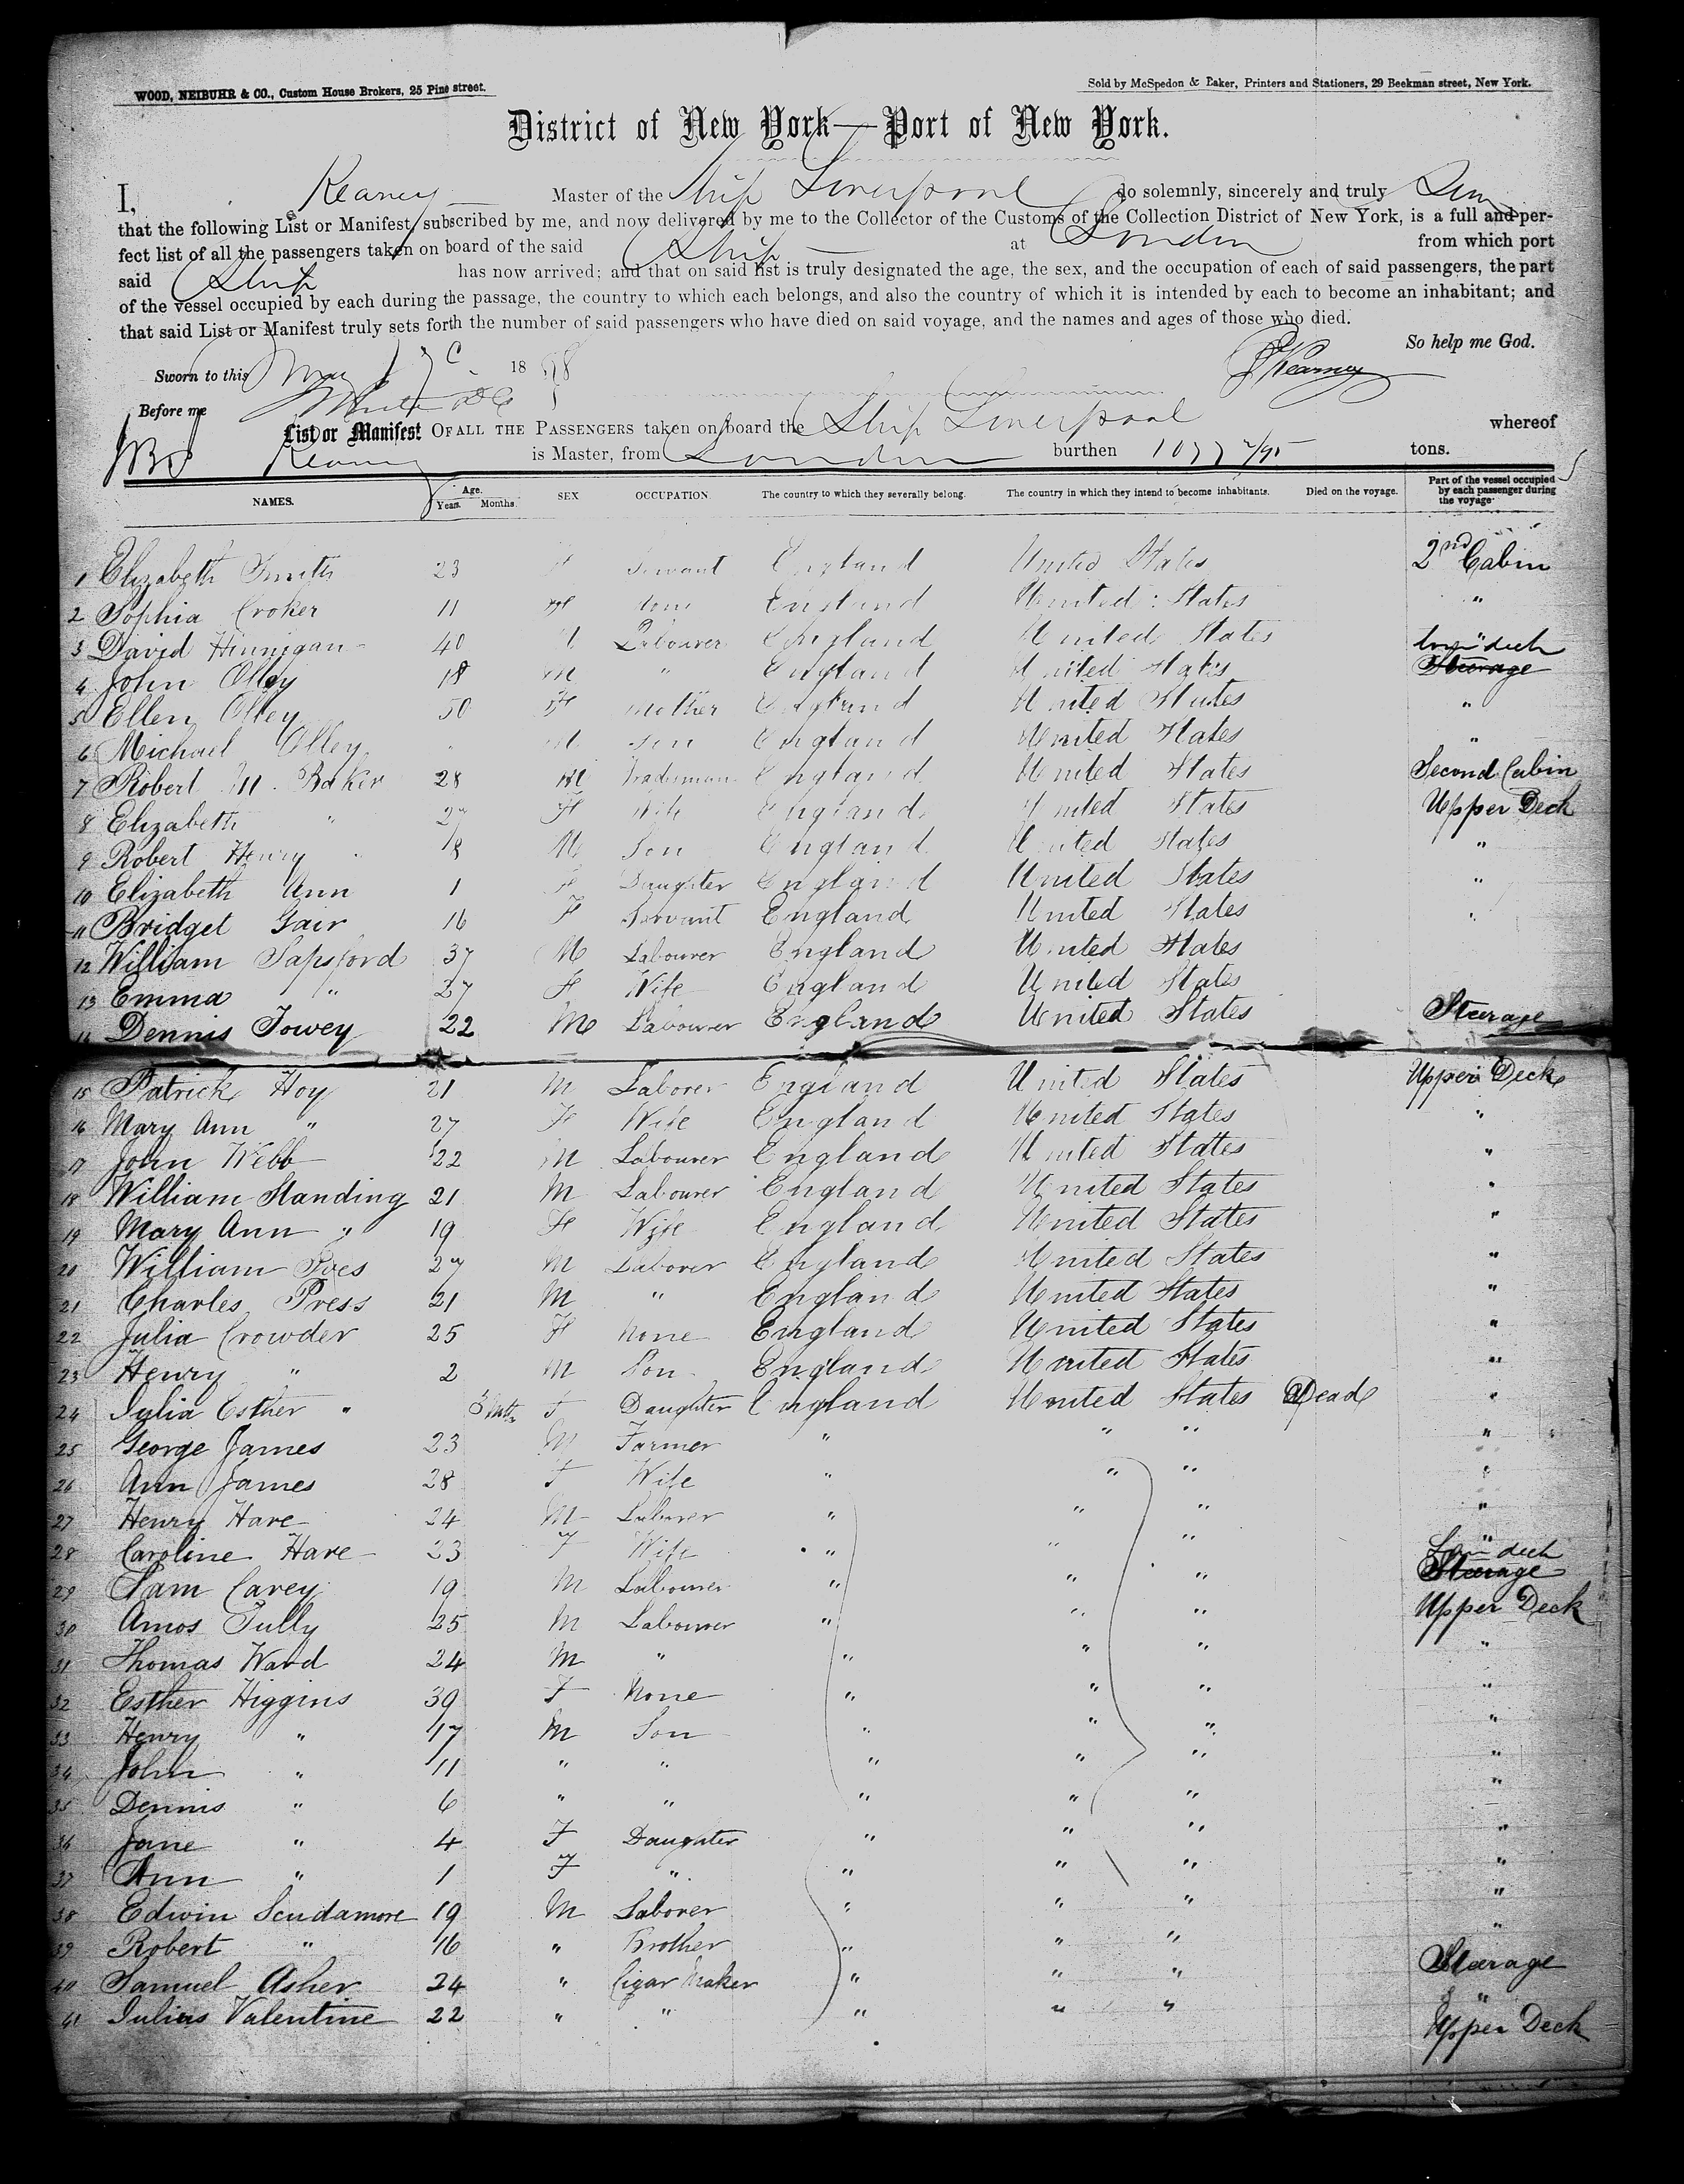 WOOD, NEIBUHR & CO., Custom House Brokers, 25 Pine street.
Sold by McSpedon & Baker, Printers and Stationers, 29 Beekman street, New York.
District of New York—Port of New York.
I, Kearney Master of the Ship Liverpool do solemnly, sincerely and truly
that the following List or Manifest, subscribed by me, and now delivered by me to the Collector of the Customs of the Collection District of New York, is a full and per-
fect list of all the passengers taken on board of the said Ship at London from which port
said Ship has now arrived; and that on said list is truly designated the age, the sex, and the occupation of each of said passengers, the part
of the vessel occupied by each during the passage, the country to which each belongs, and also the country of which it is intended by each to become an inhabitant; and
that said List or Manifest truly sets forth the number of said passengers who have died on said voyage, and the names and ages of those who died.
So help me God.
Sworn to this May 1858
J Kearney
Before me
List or Manifest OF ALL THE PASSENGERS taken on board the Ship Liverpool whereof
Kearney is Master, from London burthen tons.
NAMES. Age. Years. Months. SEX OCCUPATION. The country to which they severally belong. The country in which they intend to become inhabitants. Died on the voyage. Part of the vessel occupied by each passenger during the voyage.
1 Elizabeth Smith 23 F Servant England United States 2nd Cabin
2 Sophia Croker 11 F England United States "
3 David Hinnigan 40 M Labourer England United States "
4 John Olley 18 M " England United States Lower deck Steerage
5 Ellen Olley 50 F Mother England United States "
6 Michael Olley " M Son England United States "
7 Robert M. Baker 28 M Tradesman England United States Second Cabin
8 Elizabeth " 27 F Wife England United States Upper Deck
9 Robert Henry " M Son England United States "
10 Elizabeth Ann 1 F Daughter England United States "
11 Bridget Gair 16 F Servant England United States "
12 William Sapsford 37 M Labourer England United States
13 Emma " 27 F Wife England United States
14 Dennis Towey 22 M Labourer England United States Steerage
15 Patrick Hoy 21 M Laborer England United States Upper Deck
16 Mary Ann " 27 F Wife England United States "
17 John Webb 22 M Labourer England United States "
18 William Standing 21 M Labourer England United States "
19 Mary Ann " 19 F Wife England United States "
20 William 27 M Laborer England United States "
21 Charles Press 21 M " England United States "
22 Julia Crowder 25 F None England United States "
23 Henry " 2 M Son England United States "
24 Julia Esther " 3 Mths F Daughter England United States Dead "
25 George James 23 M Farmer " " " "
26 Ann James 28 F Wife " " " "
27 Henry Hare 24 M Laborer " " " "
28 Caroline Hare 23 F Wife " " " "
29 Sam Carey 19 M Labourer " " " Lower deck Steerage
30 Amos Tully 25 M Labourer " " " Upper Deck
31 Thomas Ward 24 M " " " " "
32 Esther Higgins 39 F None " " " "
33 Henry " 17 M Son " " " "
34 John " 11 " " " " " "
35 Dennis " 6 " " " " " "
36 Jane " 4 F Daughter " " " "
37 Ann " 1 F " " " " "
38 Edwin Scudamore 19 M Laborer " " " "
39 Robert " 16 " Brother " " " "
40 Samuel Asher 24 " Cigar Maker " " " Steerage
41 Julius Valentine 22 " " " " " "
Upper Deck